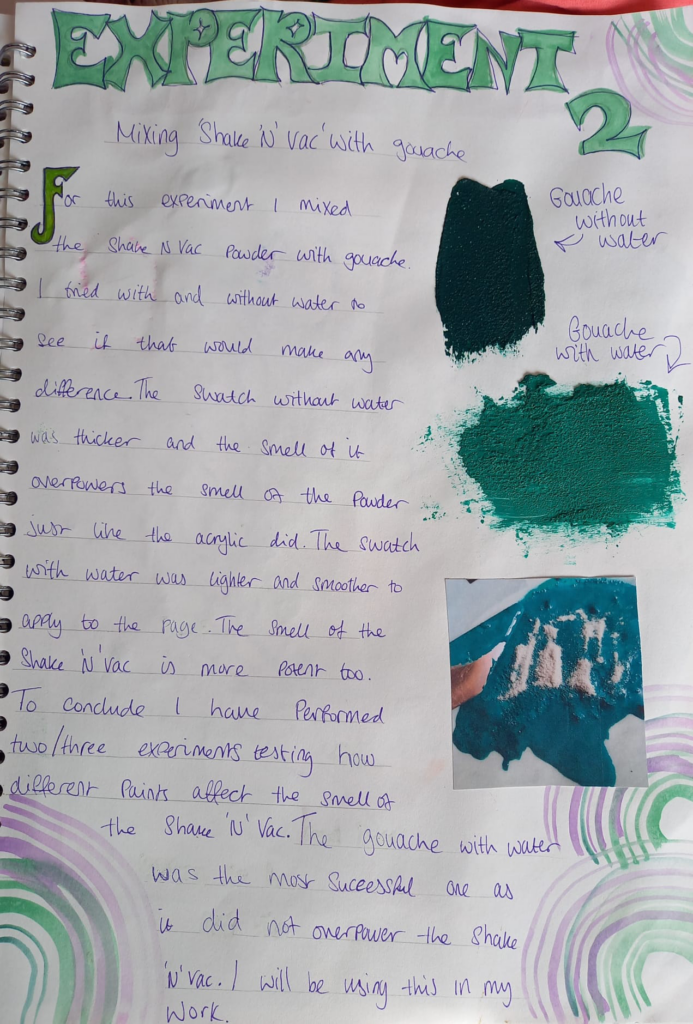 EXPERIMENT
2
Mixing 'Shake 'N' Vac' with gouache
For this experiment I mixed
the Shake N Vac Powder with gouache.
I tried with and without water to
see if that would make any
difference. The swatch without water
was thicker and the smell of it
overpowers the smell of the Powder
just like the acrylic did. The swatch
with water was lighter and smoother to
apply to the page. The smell of the
Shake 'N' Vac is more potent too.
To conclude I have Performed
two/three experiments testing how
different Paints affect the smell of
the Shake 'N' Vac. The gouache with water
was the most successful one as
it did not overpower the Shake
'N' Vac. I will be using this in my
work.
Gouache
without
water
Gouache
with water